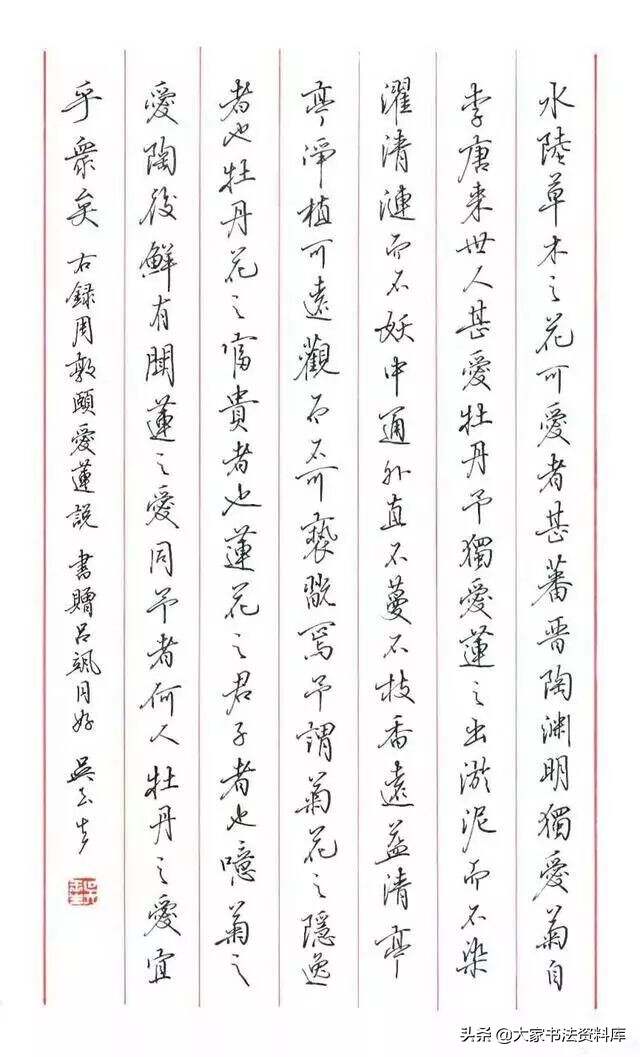 水陸草木之花可愛者甚蕃晋陶渊明獨愛菊自
李唐来世人甚愛牡丹予獨愛蓮之出淤泥而不染
濯清漣而不妖中通外直不蔓不枝香遠益清亭
亭淨植可遠觀而不可褻翫焉予謂菊花之隱逸
者也牡丹花之富貴者也蓮花之君子者也噫菊之
愛陶後鮮有聞蓮之愛同予者何人牡丹之愛宜
乎衆矣 右録周敦頤愛蓮説 書贈吕颯同好 吴玉生
头条 @大家书法资料库